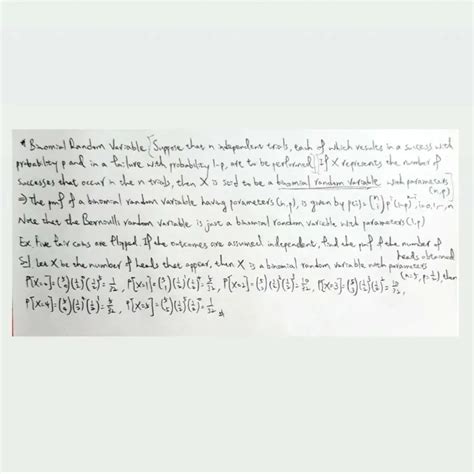 * Binomial Random Variable [Suppose that n independent trials, each of which results in a success with
probability p and in a failure with probability 1-p, are to be performed.] If X represents the number of
successes that occur in the n trials, then X is said to be a binomial random variable with parameters (n,p)
⇒ The pmf of a binomial random variable having parameters (n,p), is given by p(i) = (n i) p^i (1-p)^(n-i), i=0,1,…,n
Note that the Bernoulli random variable is just a binomial random variable with parameters (1,p)
Ex Five fair coins are flipped. If the outcomes are assumed independent, find the pmf of the number of heads obtained
Sol Let X be the number of heads that appear, then X is a binomial random variable with parameters (n=5, p=½), then
P[X=0]=(5 0)(½)^0(½)^5=1/32, P[X=1]=(5 1)(½)^1(½)^4=5/32, P[X=2]=(5 2)(½)^2(½)^3=10/32, P[X=3]=(5 3)(½)^3(½)^2=10/32,
P[X=4]=(5 4)(½)^4(½)^1=5/32, P[X=5]=(5 5)(½)^5(½)^0=1/32